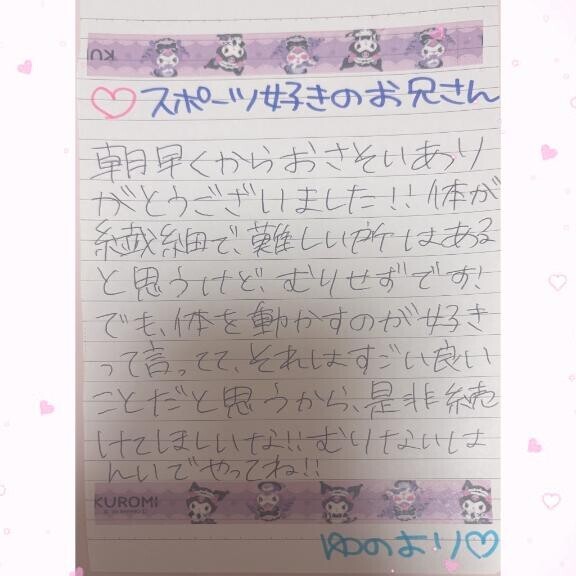 KU
スポーツ好きのお兄さん
朝早くからおさそいあり
がとうございました!!体が
繊細で、難しい所はある
と思うけど、むりせずです!
でも、体を動かすのが好き
って言ってて、それはすごい良い
ことだと思うから、是非続
けてほしいな!!むりないは
んいでやってね!!
KUROMI
ゆのより♡